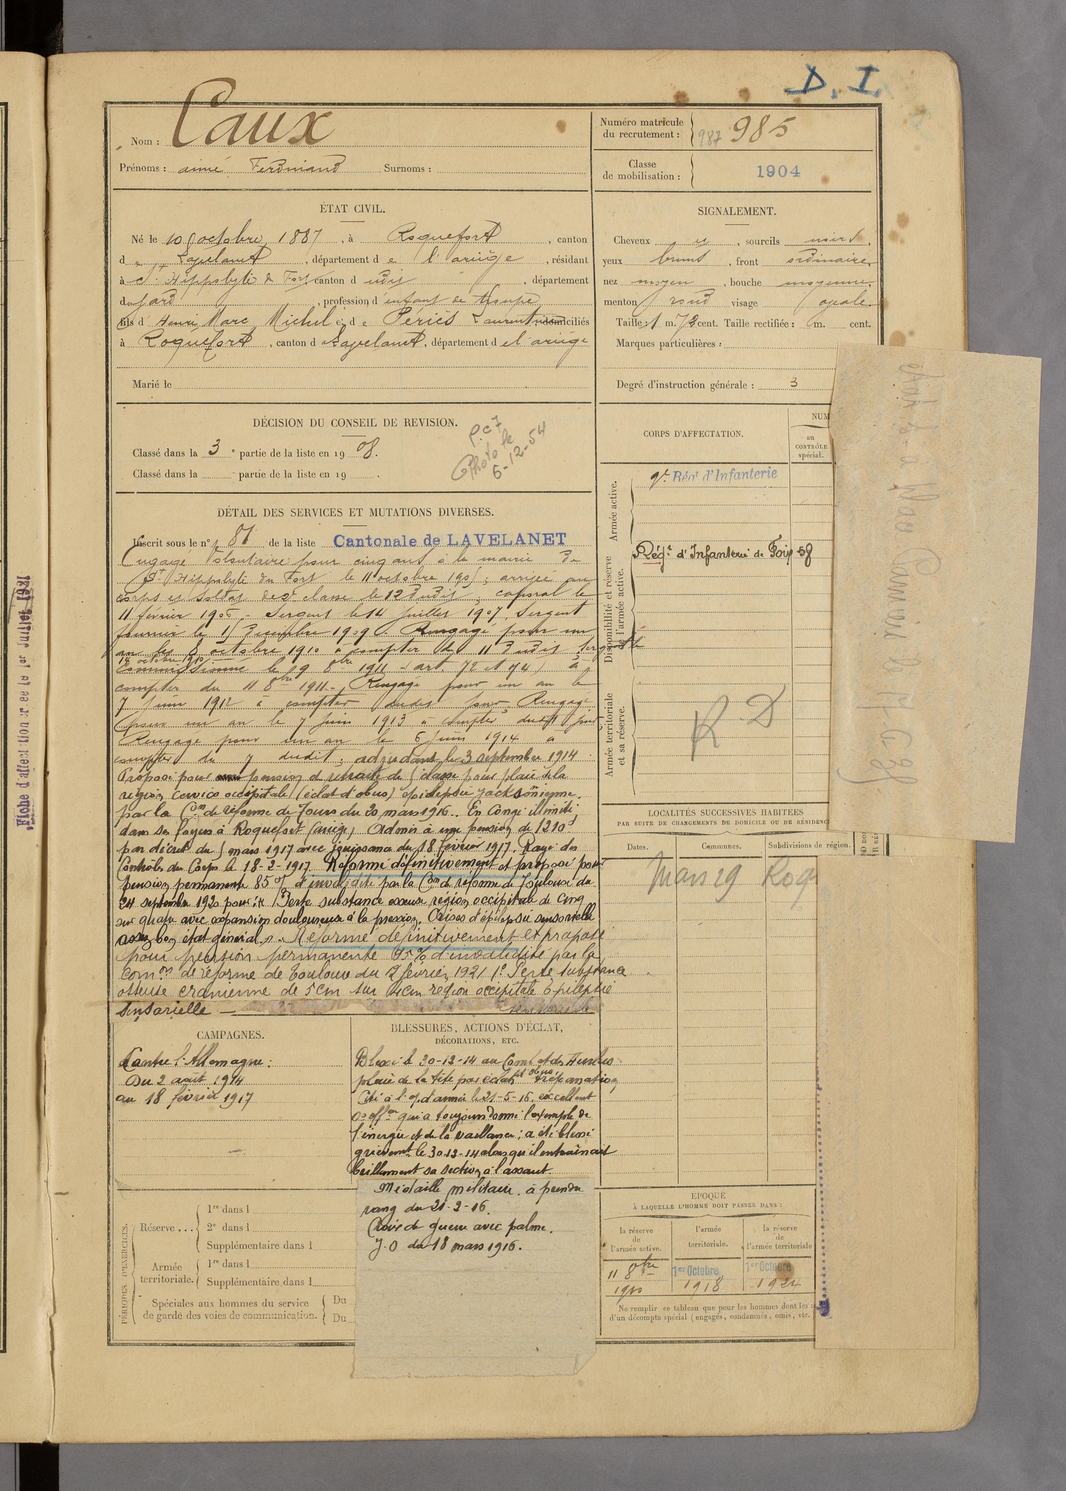 D. I.
Nom : Caux
Prénoms : aimé Ferdinand Surnoms :
Numéro matricule
du recrutement : 987 985
Classe
de mobilisation : 1904
ÉTAT CIVIL.
Né le 10 octobre 1887, à Roquefort, canton
de Lavelanet, département de l'ariège, résidant
à St Hippolyte du Fort, canton d udit, département
du gard, profession d enfant de troupe
fils d' Henri Marc Michel et de Périès Laurent domiciliés
à Roquefort, canton de Lavelanet, département d e l'ariège
Marié le
SIGNALEMENT.
Cheveux, sourcils noirs,
yeux bruns, front ordinaire,
nez moyen, bouche moyenne,
menton rond visage ovale.
Taille : 1 m. 72 cent. Taille rectifiée : m. cent.
Marques particulières :
Degré d'instruction générale : 3
DÉCISION DU CONSEIL DE REVISION.
Classé dans la 3e partie de la liste en 1908.
Classé dans la partie de la liste en 19 .
Photo le
6-12-54
CORPS D'AFFECTATION.
NUM
au
CONTRÔLE
spécial.
Armée active.
9e Régt d'Infanterie
Disponibilité et réserve
de l'armée active.
Régt d'Infanterie de Foix 58
Armée territoriale
et sa réserve.
R. D
DÉTAIL DES SERVICES ET MUTATIONS DIVERSES.
Inscrit sous le n° 81 de la liste Cantonale de LAVELANET
Engagé Volontaire pour cinq ans à la mairie de
St Hippolyte du Fort le 11 octobre 1905; arrivé au
corps et soldat de 2e classe le 12 dudit; caporal le
11 février 1906. Sergent le 14 juillet 1907. Sergent
fourrier le 1 Décembre 1909. Rengagé pour un
an le 8 octobre 1910 à compter du 11 dudit. Sergent le
Commissionné le 29 8bre 1911 (art. 72 et 74) à
compter du 11 8bre 1911. Rengagé pour un an le
7 juin 1912 à compter dudit jour. Rengagé
pour un an le 7 juin 1913 à compter dudit jour.
Rengagé pour un an le 6 juin 1914 à
compter du 7 dudit; adjudant le 3 septembre 1914
Proposé pour pension de retraite de classe pour plaie de la
région cervico occipitale (éclat d'obus) épilepsie jacksonienne.
par la Con de réforme de Tours du 20 mars 1916. En congé illimité
dans ses foyers à Roquefort (ariège) Admis à une pension de 1210f
par décret du mars 1917 avec jouissance du 18 février 1917. Rayé des
Contrôles du Corps le 18-2-1917. Réformé définitivement et proposé pour
pension permanente 85 % d'invalidité par la Con de réforme de Toulouse du
24 septembre 1920 pour: Perte substance osseuse région occipitale de cinq
sur quatre avec expansion douloureuse à la pression. Crises d'épilepsie sensorielle
assez bon état général. Réformé définitivement et proposé
pour pension permanente 85 % d'invalidité par la
Comon de réforme de Toulouse du 2 février 1921 1° Perte substance
osseuse cranienne de 5cm sur 4cm région occipitale épilepsie
sensorielle
LOCALITÉS SUCCESSIVES HABITÉES
PAR SUITE DE CHANGEMENTS DE DOMICILE OU DE RÉSIDENC
Dates. Communes. Subdivisions de région.
Mars 29 Roq
CAMPAGNES.
Contre l'Allemagne :
Du 2 août 1914
au 18 février 1917
BLESSURES, ACTIONS D'ÉCLAT,
DÉCORATIONS, ETC.
Blessé le 30-12-14 au Combat des Hurlus
plaie de la tête par éclat d'obus, trépanation
Cité à l'o/ d'armée le 21-5-16, excellent
s/offer qui a toujours donné l'exemple de
l'énergie et de la vaillance; a été blessé
grièvement le 30-12-14 alors qu'il entrainait
brillamment sa section à l'assaut.
Médaille militaire. à prendre
rang du 21-2-16.
Croix de guerre avec palme.
J.O du 18 mars 1916.
PÉRIODES D'EXERCICES.
Réserve . . .
1re dans l
2e dans l
Supplémentaire dans l
Armée
territoriale.
1re dans l
Supplémentaire dans l
Spéciales aux hommes du service
de garde des voies de communication.
Du
Du
EPOQUE
À LAQUELLE L'HOMME DOIT PASSER DANS :
la réserve
de
l'armée active.
l'armée
territoriale.
la réserve
de
l'armée territoriale
11 8bre
1910
1er Octobre
1918
1er Octobre
1924
Ne remplir ce tableau que pour les hommes dont les
d'un décompte spécial (engagés, condamnés, omis, etc.